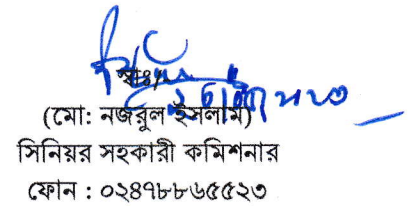 স্বাঃ/-
(মো: নজরুল ইসলাম)
সিনিয়র সহকারী কমিশনার
ফোন : ০২৪৭৮৮৬৫৫২৩